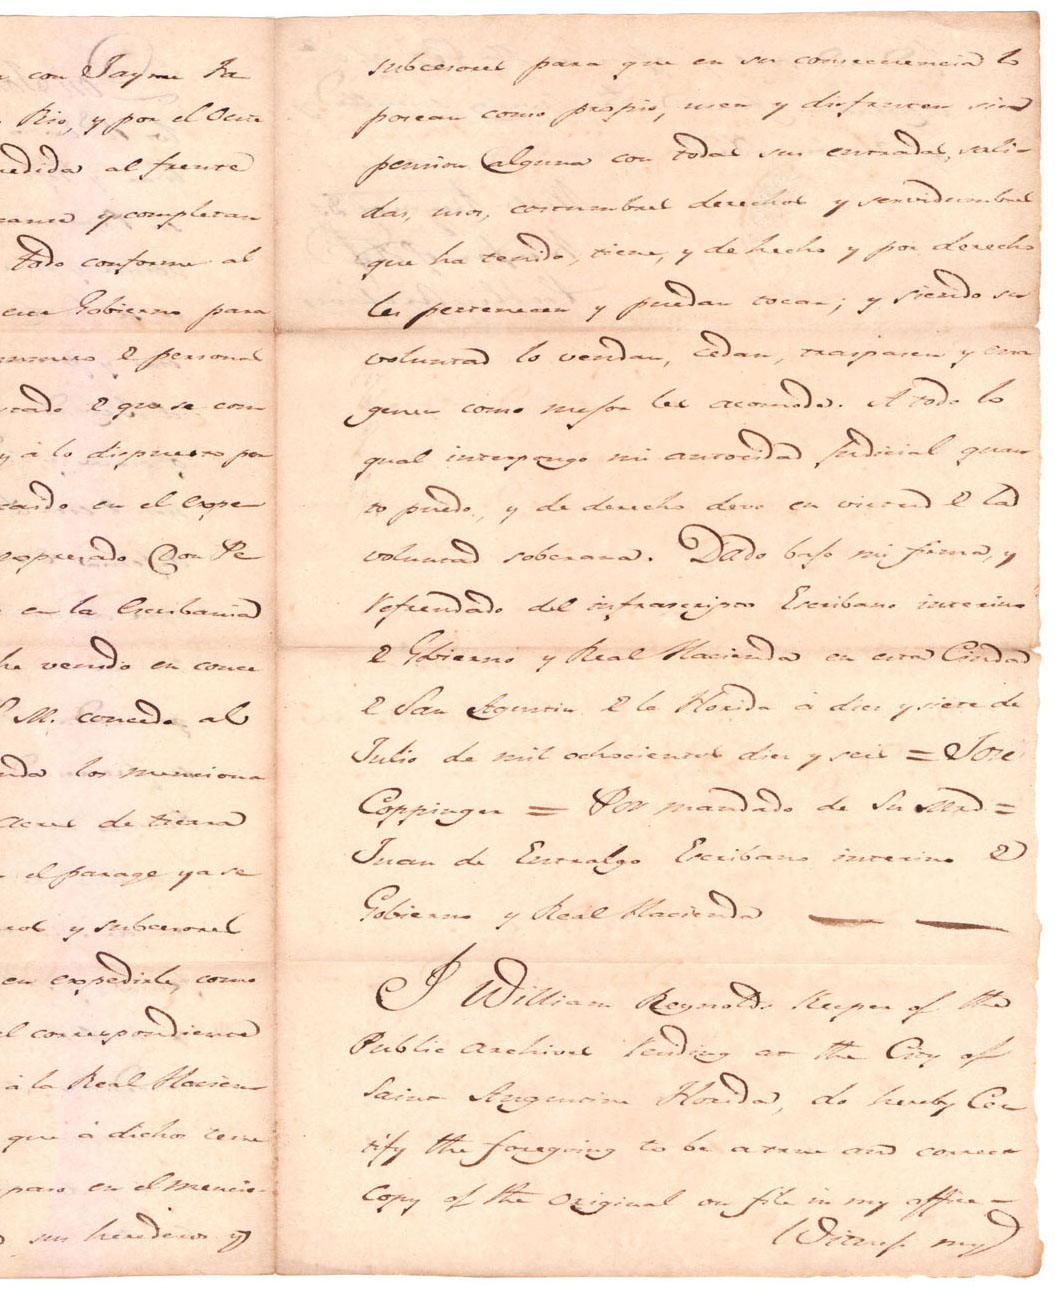 con Jayme Fa
Rio, y por el Occi
edida al frente
y completan
todo conforme al
Gobierno para
2 personal
2 que se com
y á lo dispuesto por
caido en el expe
expresado Don Pe
en la Escribania
he venido en conce
S. M. concedo al
los menciona
acres de tierra
el parage ya se
y subcesores
en expedirle, como
el correspondiente
á la Real Hacien
que á dichos terre
paso en el mencio-
sus herederos y
subcesores para que en su consecuencia lo
posean como propio, usen y disfruten sin
pension alguna con todas sus entradas, sali-
das, usos, costumbres derechos y servidumbres
que ha tenido, tiene, y de hecho y por derecho
les pertenecen y puedan tocar; y siendo su
voluntad lo vendan, cedan, traspasen y ena
genen como mejor les acomode. A todo lo
qual interpongo mi autoridad Judicial quan
to puedo, y de derecho devo en virtud 2 la
voluntad soberana. Dado bajo mi firma, y
refrendado del infrascripto Escribano interino
2 Gobierno y Real Hacienda en esta Ciudad
2 San Agustin 2 la Florida á dies y siete de
Julio de mil ochocientos dies y seis = Jose
Coppinger = Por mandado de Su Srād =
Juan de Entralgo Escribano interino 2
Gobierno y Real Hacienda
I William Reynolds Keeper of the
Public Archives Kending at the City of
Saint Augustine Florida, do hereby Cer
tify the foregoing to be a true and correct
Copy of the Original on file in my office-
Witness my